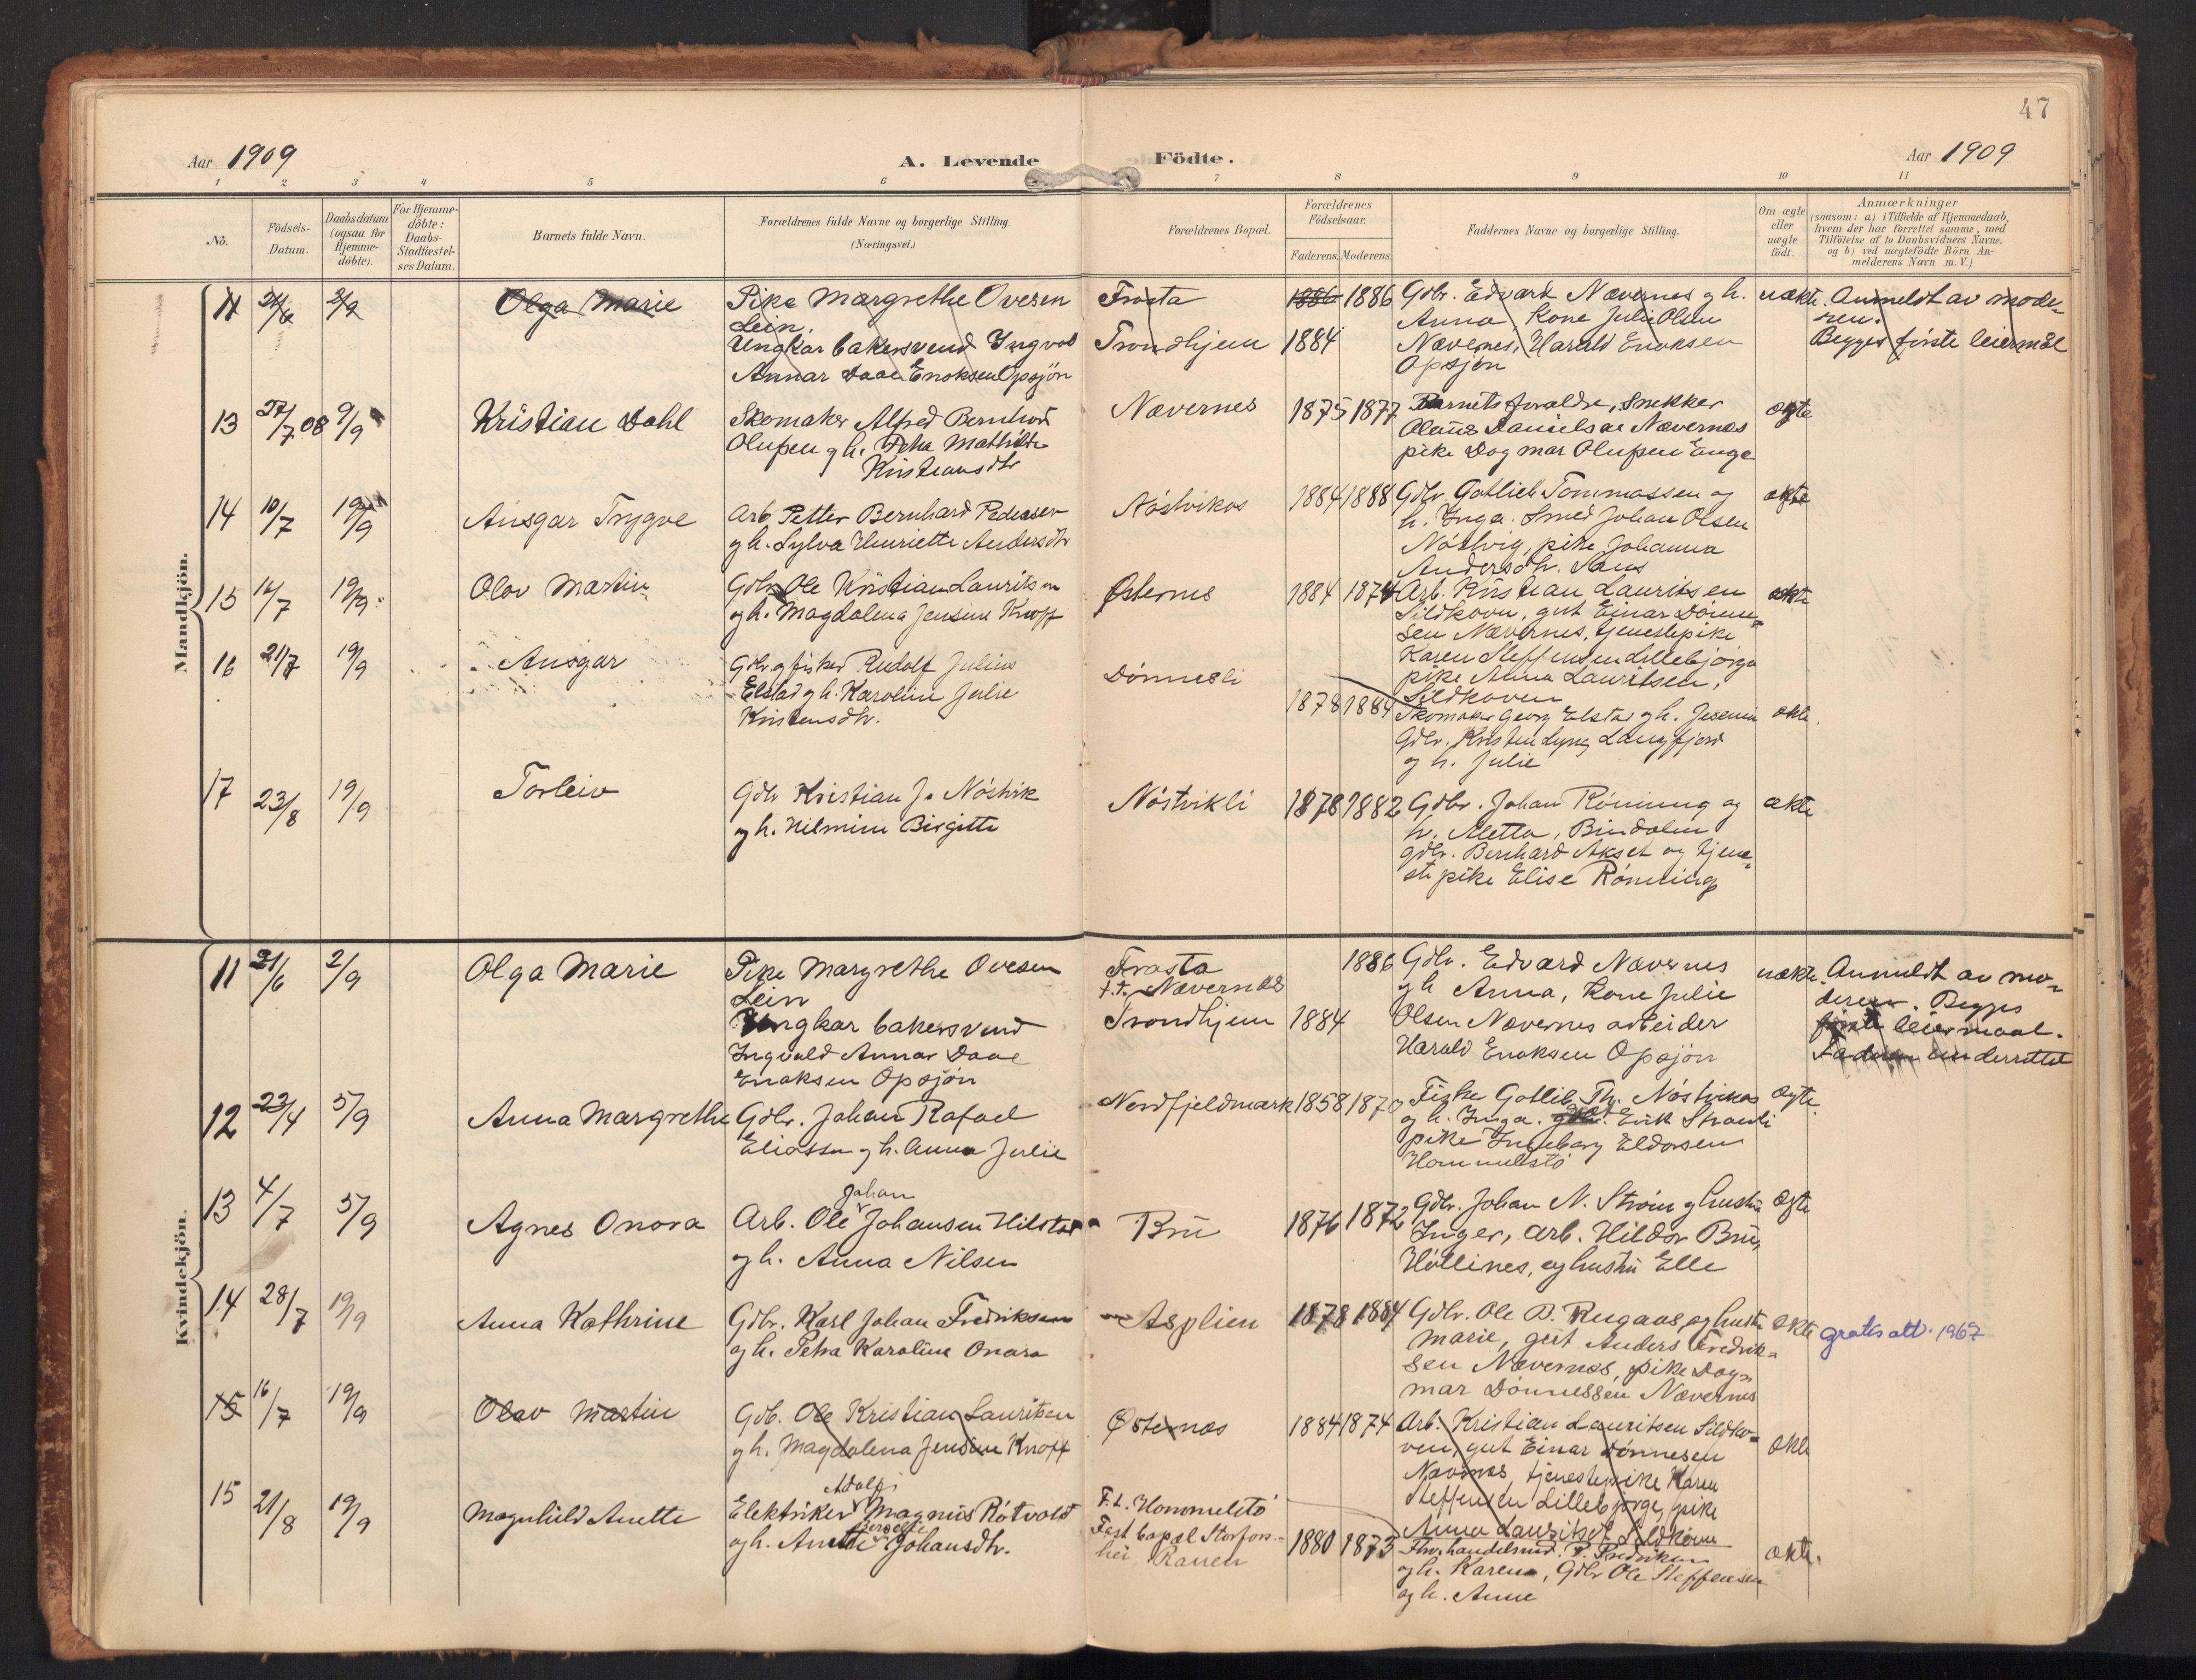 47
Aar 1909
A. Levende
Födte.
Aar 1909
1 2 3 4 5 6 7 8 9 10 11
No.
Födsels-Datum.
Daabsdatum (ogsaa for Hjemme-döbte).
For Hjemme-döbte: Daabs-Stadfæstel-ses Datum.
Barnets fulde Navn.
Forældrenes fulde Navne og borgerlige Stilling.
(Næringsvei.)
Forældrenes Bopæl.
Forældrenes Födselsaar.
Faderens. Moderens.
Faddernes Navne og borgerlige Stilling.
Om ægte eller uægte födt.
Anmærkninger
(saasom: a) i Tilfælde af Hjemmedaab,
hvem der har forrettet samme, med
Tilföielse af to Daabsvidners Navne,
og b) ved uægtefödte Börn An-
melderens Navn m. V.)
Mandkjön.
11 21/6 2/9 Olga Marie
Pike Margrethe Ovesen
Lein.
Ungkar bakersvend Ingvald
Annar Daae Enoksen Opsjön
Frosta
Trondhjem
1886 1886
1884
Gdbr. Edvard Nævernes g h.
Anna, Kone Julie Olsen
Nævernes, Harald Enoksen
Opsjön
uækte.
Anmeldt av mode-
ren.
Begges första leiermål
13 27/7 08 9/9 Kristian Dahl
Skomaker Alfred Bernhard
Olufsen g h. Petra Mathilde
Kristiansdtr
Nævernes
1875 1877
Barnets foraldre, Snekker
Olaus Danielsen Nævernes
pike Dagmar Olufsen Enge
ægte
14 10/7 19/9 Ansgar Trygve
Arb. Petter Bernhard Pedersen
g h. Sylva Henriette Andersdtr
Nöstvikas
1884 1888
Gdbr. Gotlieb Tommassen og
h. Inga. Smed Johan Olsen
Nöstvig, pike Johanna
Andersdtr. Saus
ækte
15 16/7 19/9. Olav Martin
Gdbr Ole Kristian Lauritsen
g h. Magdalena Jensine Knoff
Østernes
1884 1874
Arb. Kristian Lauritsen
Sildhovn, gut Einar Dönne-
sen Nævernes, tjenestepike
Karen Steffensen Lillebjörga
pike Anna Lauritsen,
Sildhoven
ækte
16 21/7 19/9 Ansgar
Gdbr. g fisker Rudolf Julius
Elstad g h. Karoline Julie
Kristensdtr.
Dönnesli
1878 1884
Skomaker Georg Elstad g h. Jesemine
Gdbr. Kristen Lyng Langfjord
og h. Julie
ækte.
17 23/8 19/9 Torleiv
Gdbr Kristian J. Nöstvik
g h. Hilmine Birgitte
Nöstvikli
1878 1882
Gdbr. Johan Rönning og
h. Aletta, Bindalen
gdbr. Bernhard Akset og tjene-
ste pike Elise Rönning
ækte
Kvindekjön.
11 21/6 2/9 Olga Marie
Pike Margrethe Ovesen
Lein
Ungkar bakersvend
Ingvald Annar Daae
Enoksen Opsjön
Frosta
f.t. Nævernes
Trondhjem
1886
1884
Gdbr. Edvard Nævernes
g h Anna, Kone Julie
Olsen Nævernes arbeider
Harald Enoksen Opsjön
uækte.
Anmeldt av mo-
deren. Begges
förste leiermaal.
Faderen underrettet
12 23/4 5/9 Anna Margrethe
Gdbr. Johan Rafael
Eliassen g h. Anna Julie
Nordfjeldmark
1858 1870
Fisker Gotlieb Th. Nöstvikas
og h. Inga. Erik Strandli
pike Ingeborg Eldorsen
Hommelstö
ægte.
13 4/7 5/9 Agnes Onora
Johan
Arb. Ole Johansen Hilstad
g h. Anna Nilsen
Brú
1876 1872
Gdbr. Johan N. Ström g hustru
Inger, arb. Hildor Brú,
Höllines, og hustru Elle
ægte
14 28/7 19/9 Anna Kathrine
Gdbr. Karl Johan Fredriksen
og h. Petra Karoline Onara
Asplien
1878 1884
Gdbr. Ole B. Rugaas, og hustr
Marie, gut Anders Fredrik-
sen Nævernes, pike Dag-
mar Dönnessen Nævernes
ækte
gratis att. 1967
15 16/7 19/9 Olav Martin
Gdb. Ole Kristian Lauritsen
g h. Magdalena Jensine Knoff
Østernæs
1884 1874
Arb. Kristian Lauritsen Sildho-
ven, gut Einar Dönnesen
Nævernes, tjenestepike Karen
Steffensen Lillebjörga, pike
Anna Lauritsen Sildhoven
ækte
15 21/8 19/9 Magnhild Anette
Adolf
Elektriker Magnus Rötvold
g h. Anette Johansdtr.
F.t. Hommelstö
Fast bopæl Storfors-
hei, Ranen
1880 1873
Fhv. handelsmd. P. Fredriksen
og h. Karen, Gdbr Ole Steffensen
og h. Anne
ækte.